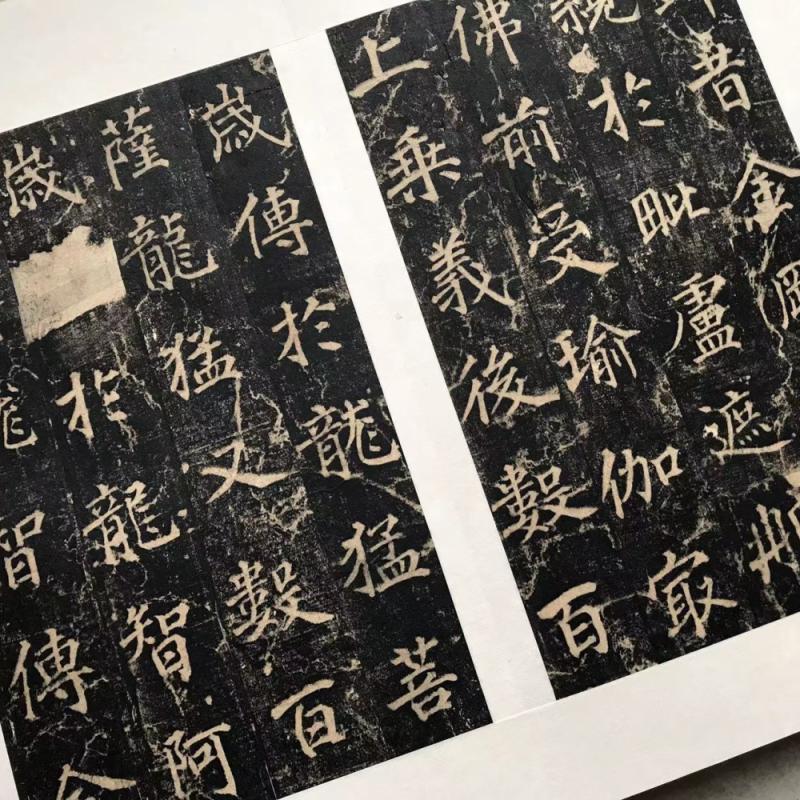 昔金
親於毗盧遮那
佛前受瑜伽冣
上乘義後數百
歲傳於龍猛菩
薩龍猛又數百
歲於龍智阿
龍智傳金